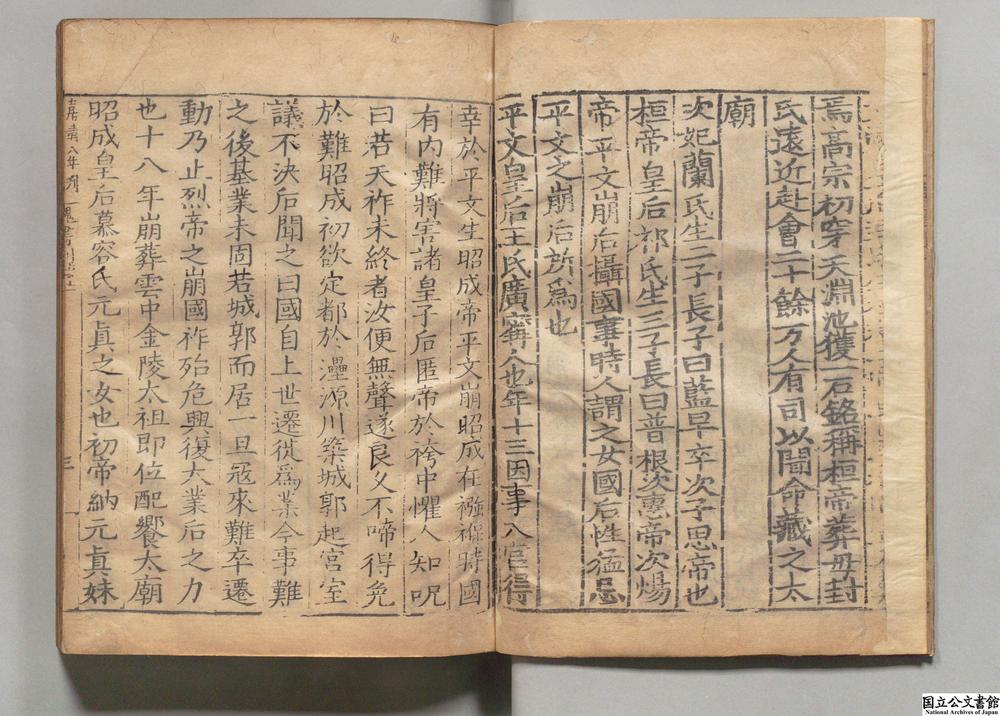 焉高宗初穿天淵池獲一石銘稱桓帝葬母封
氏遠近赴會二十餘万人有司以聞命藏之太
廟
次妃蘭氏生二子長子曰藍早卒次子思帝也
桓帝皇后祁氏生三子長曰普根次惠帝次煬
帝平文崩后攝國事時人謂之女國后性猛忌
平文之崩后所為也
平文皇后王氏廣寗人也年十三因事入宫得
幸於平文生昭成帝平文崩昭成在襁褓時國
有内難將害諸皇子后匿帝於袴中懼人知呪
曰若天祚未終者汝便無聲遂良久不啼得免
於難昭成初欲定都於㶟源川築城郭起宫室
議不決后聞之曰國自上世遷徙爲業今事難
之後基業未固若城郭而居一旦冦來難卒遷
動乃止烈帝之崩國祚殆危興復大業后之力
也十八年崩葬雲中金陵太祖即位配饗太廟
昭成皇后慕容氏元真之女也初帝納元真妹
三
国立公文書館
National Archives of Japan